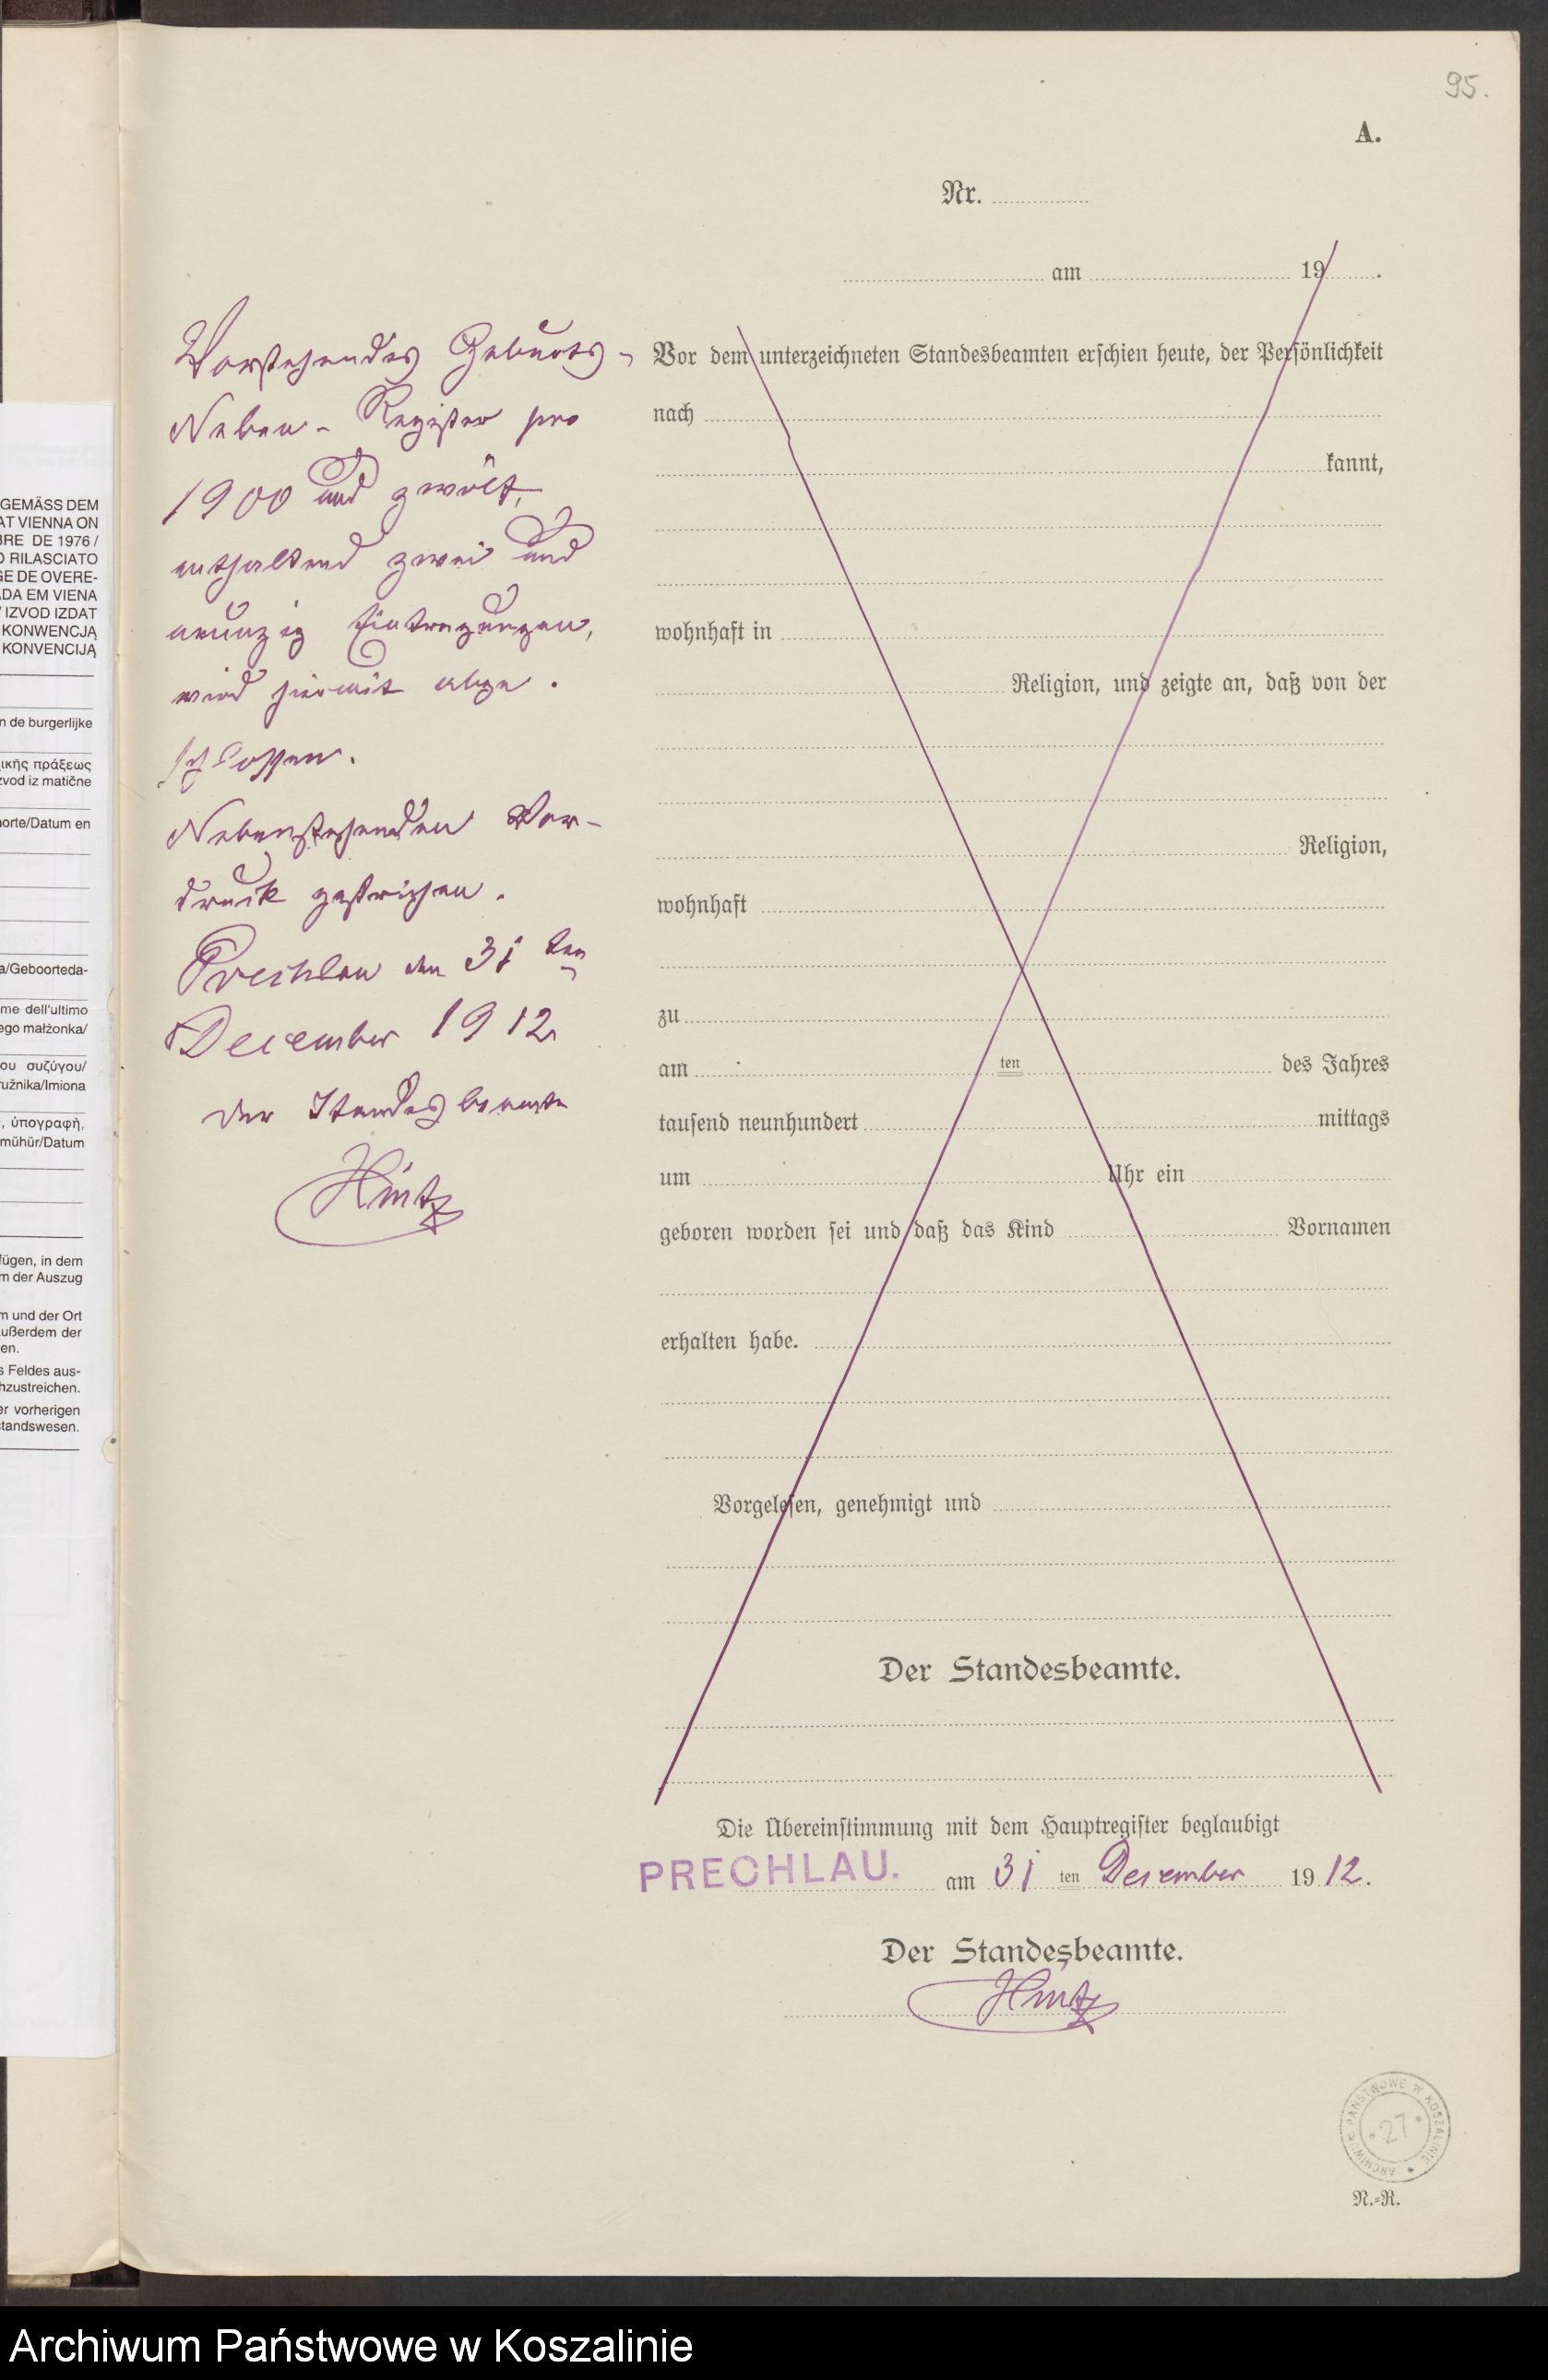 95.
A.
Nr.
am 19 .
Vorstehendes Geburts-
Neben-Register pro
1900 und zwölf,
enthaltend zwei und
neunzig Eintragungen,
wird hiermit abge-
schlossen.
Nebenstehenden Vor-
druck gestrichen.
Prechlau den 31 ten
Dezember 1912
Der Standesbeamte
Hintz
Vor dem unterzeichneten Standesbeamten erschien heute, der Persönlichkeit
nach
kannt,
wohnhaft in
Religion, und zeigte an, daß von der
Religion,
wohnhaft
zu
am ten des Jahres
tausend neunhundert mittags
um Uhr ein
geboren worden sei und daß das Kind Vornamen
erhalten habe.
Vorgelesen, genehmigt und
Der Standesbeamte.
Die Übereinstimmung mit dem Hauptregister beglaubigt
PRECHLAU. am 31 ten Dezember 1912.
Der Standesbeamte.
Hintz
ARCHIWUM PAŃSTWOWE W KOSZALINIE
* 27 *
N.-R.
GEMÄSS DEM
AT VIENNA ON
BRE DE 1976 /
O RILASCIATO
GE DE OVERE-
ADA EM VIENA
/ IZVOD IZDAT
KONWENCJĄ
KONVENCIJĄ
n de burgerlijke
ικῆς πράξεως
zvod iz matične
oorte/Datum en
a/Geboorteda-
me dell'ultimo
ego małżonka/
ου συζύγου/
ružnika/Imiona
, ὑπογραφὴ,
mühür/Datum
fügen, in dem
m der Auszug
m und der Ort
ußerdem der
en.
s Feldes aus-
hzustreichen.
er vorherigen
standswesen.
Archiwum Państwowe w Koszalinie